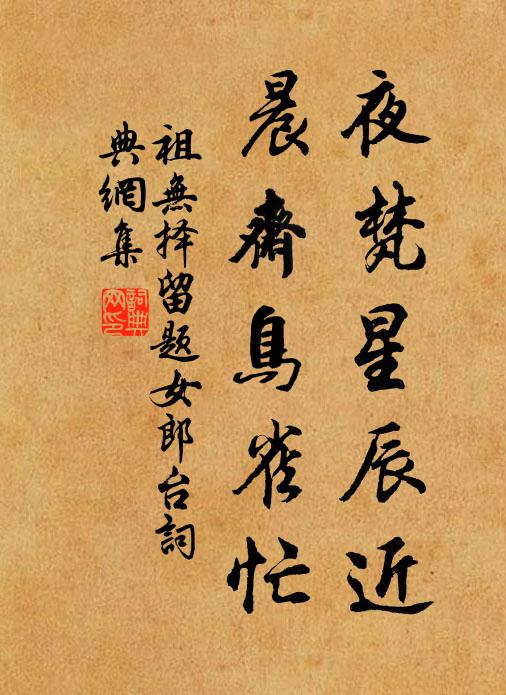 夜梵星辰近
晨齋鳥雀忙
祖無择留题女郎台詞
典網集
詞典
网印